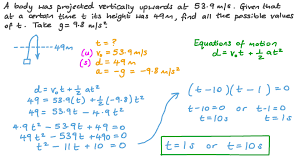 A body was projected vertically upwards at 53.9 m/s. Given that
at a certain time t its height was 49m, find all the possible values
of t. Take g = 9.8 m/s².
49m
t = ?
(u) v₀ = 53.9 m/s
(s) d = 49m
a = -g = -9.8 m/s²
Equations of motion
d = v₀t + ½ at²
d = v₀t + ½ at²
49 = 53.9(t) + ½(-9.8) t²
49 = 53.9t - 4.9t²
4.9t² - 53.9t + 49 = 0
49t² - 539t + 490 = 0
t² - 11t + 10 = 0
(t-10)(t-1) = 0
t-10=0 or t-1=0
t=10s t=1s
t=1s or t=10s